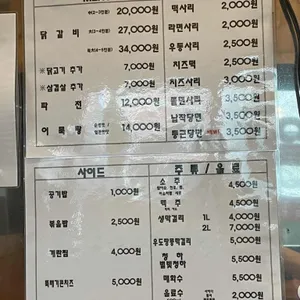 소(2~3인분) 20,000원
닭갈비 중(3~4인분) 27,000원
특대(4~5인분) 34,000원
※닭고기 추가 7,000원
※삼겹살 추가 7,000원
파전 12,000원
이륙랑 14,000원
떡사리 2,000원
라면사리 2,000원
우동사리 2,500원
치즈떡 2,500원
치즈사리 3,500원
쫄면사리 3,500원
납작당면 3,500원
둥근당면 3,500원
사이드
공기밥 1,000원
볶음밥 2,500원
계란찜 4,000원
뚝배기콘치즈 5,000원
주류/음료
소주 4,500원
맥주 4,500원
생막걸리 1L 4,000원
2L 7,000원
우도땅콩막걸리 5,000원
청하
별빛청하 5,500원
매화수 5,500원
음료수 2,000원